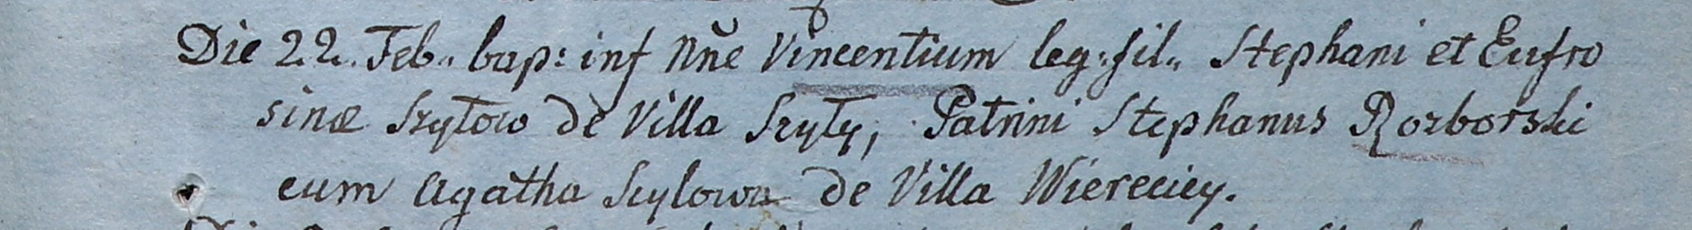 Die 22. Feb. bap: inf Nñe Vincentium leg: fil. Stephani et Eufro
sinæ Szytow de Villa Szyty, Patrini Stephanus Rozborski
cum Agatha Scylowa de Villa Wiereciey.